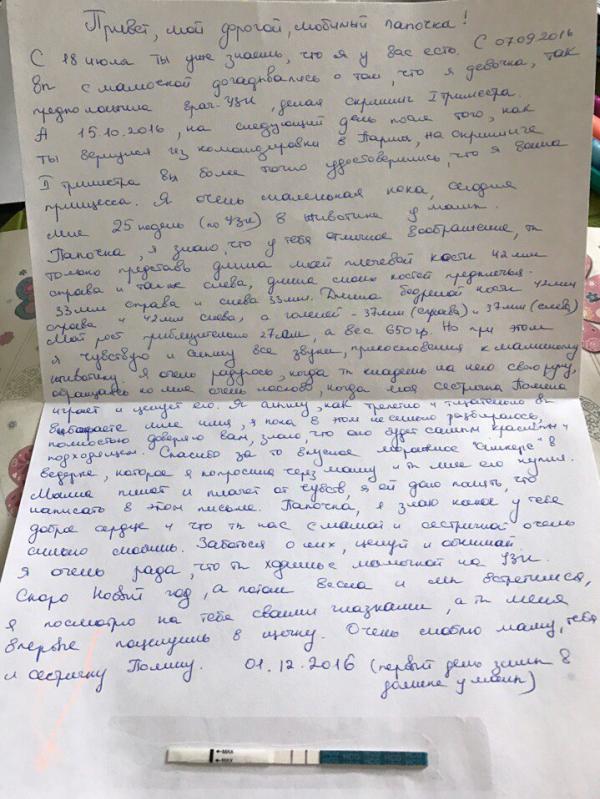 Привет, мой дорогой, любимый папочка!
С 18 июля ты уже знаешь, что я у вас есть. С 07.09.2016
вы с мамочкой догадывались о том, что я девочка, так
предположила врач-УЗИ, делая скрининг I триместра.
А 15.10.2016, на следующий день после того, как
ты вернулся из командировки в Парма, на скрининге
II триместра вы более точно удостоверились, что я ваша
принцесса. Я очень маленькая пока, сегодня
мне 25 недель (по УЗИ) в животике у мамы.
Папочка, я знаю, что у тебя отличное воображение, ты
только представь длина моей плечевой кости 42мм
справа и также слева, длина моих костей предплечья -
33мм справа и слева 33мм. Длина бедреной кости 42мм
справа и 42мм слева, а голеней - 37мм (справа) и 37мм (слева)
Мой рост приблизительно 27см, а вес 650гр. Но при этом
я чувствую и слышу все звуки, прикосновения к маминому
животику. Я очень радуюсь, когда ты кладешь на него свою руку,
обращаясь ко мне очень ласково, когда моя сестричка Полина
играет и целует его. Я слышу, как трепетно и тщательно вы
выбираете мне имя, я пока в этом не сильно разбираюсь,
полностью доверяю вам, знаю, что оно будет самым красивым и
подходящим. Спасибо за то вкусное мороженое "Сникерс" в
ведерке, которое я попросила через маму и ты мне его купил.
Мама пишет и плачет от чувств, я ей даю понять, что
написать в этом письме. Папочка, я знаю какое у тебя
доброе сердце и что ты нас с мамой и сестричкой очень
сильно любишь. Заботься о них, целуй и обнимай.
Я очень рада, что ты ходишь с мамочкой на УЗИ.
Скоро Новый год, а потом весна и мы встретимся,
я посмотрю на тебя своими глазками, а ты меня
впервые поцелуешь в щечку. Очень люблю маму, тебя
и сестричку Полину. 01.12.2016 (первый день зимы в
домике у мамы)
MAX
MAX